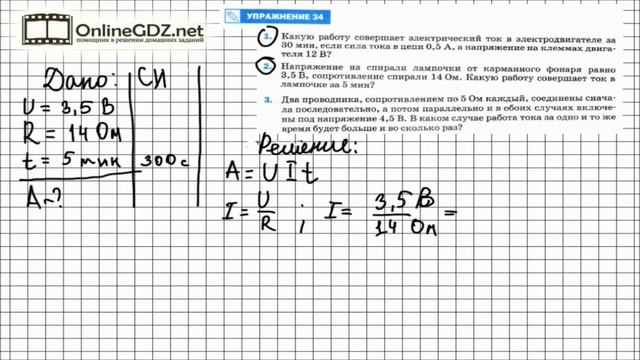 OnlineGDZ.net
помощник в решении домашних заданий
УПРАЖНЕНИЕ 34
1. Какую работу совершает электрический ток в электродвигателе за
30 мин, если сила тока в цепи 0,5 А, а напряжение на клеммах двига-
теля 12 В?
2. Напряжение на спирали лампочки от карманного фонаря равно
3,5 В, сопротивление спирали 14 Ом. Какую работу совершает ток в
лампочке за 5 мин?
3. Два проводника, сопротивлением по 5 Ом каждый, соединены снача-
ла последовательно, а потом параллельно и в обоих случаях включе-
ны под напряжение 4,5 В. В каком случае работа тока за одно и то же
время будет больше и во сколько раз?
Дано: СИ
U = 3,5 В
R = 14 Ом
t = 5 мин 300 с
A - ?
Решение:
A = U I t
I = U/R ; I = 3,5 В/14 Ом =